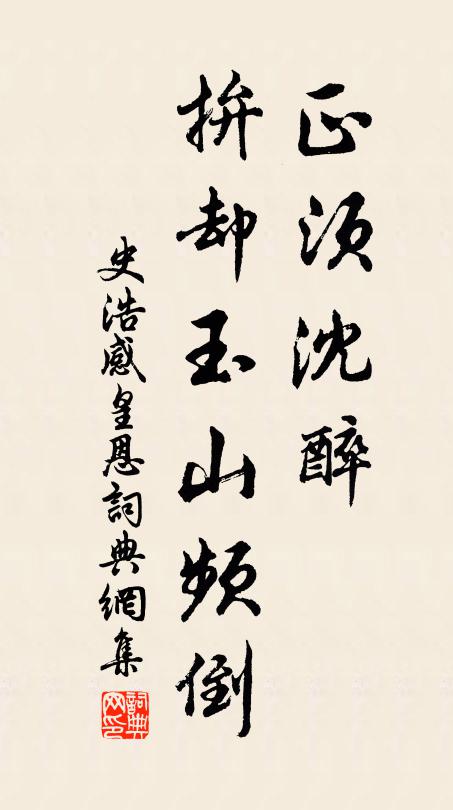 正須沈醉
拚却玉山頻倒
史浩感皇恩詞典網集
詞典网印